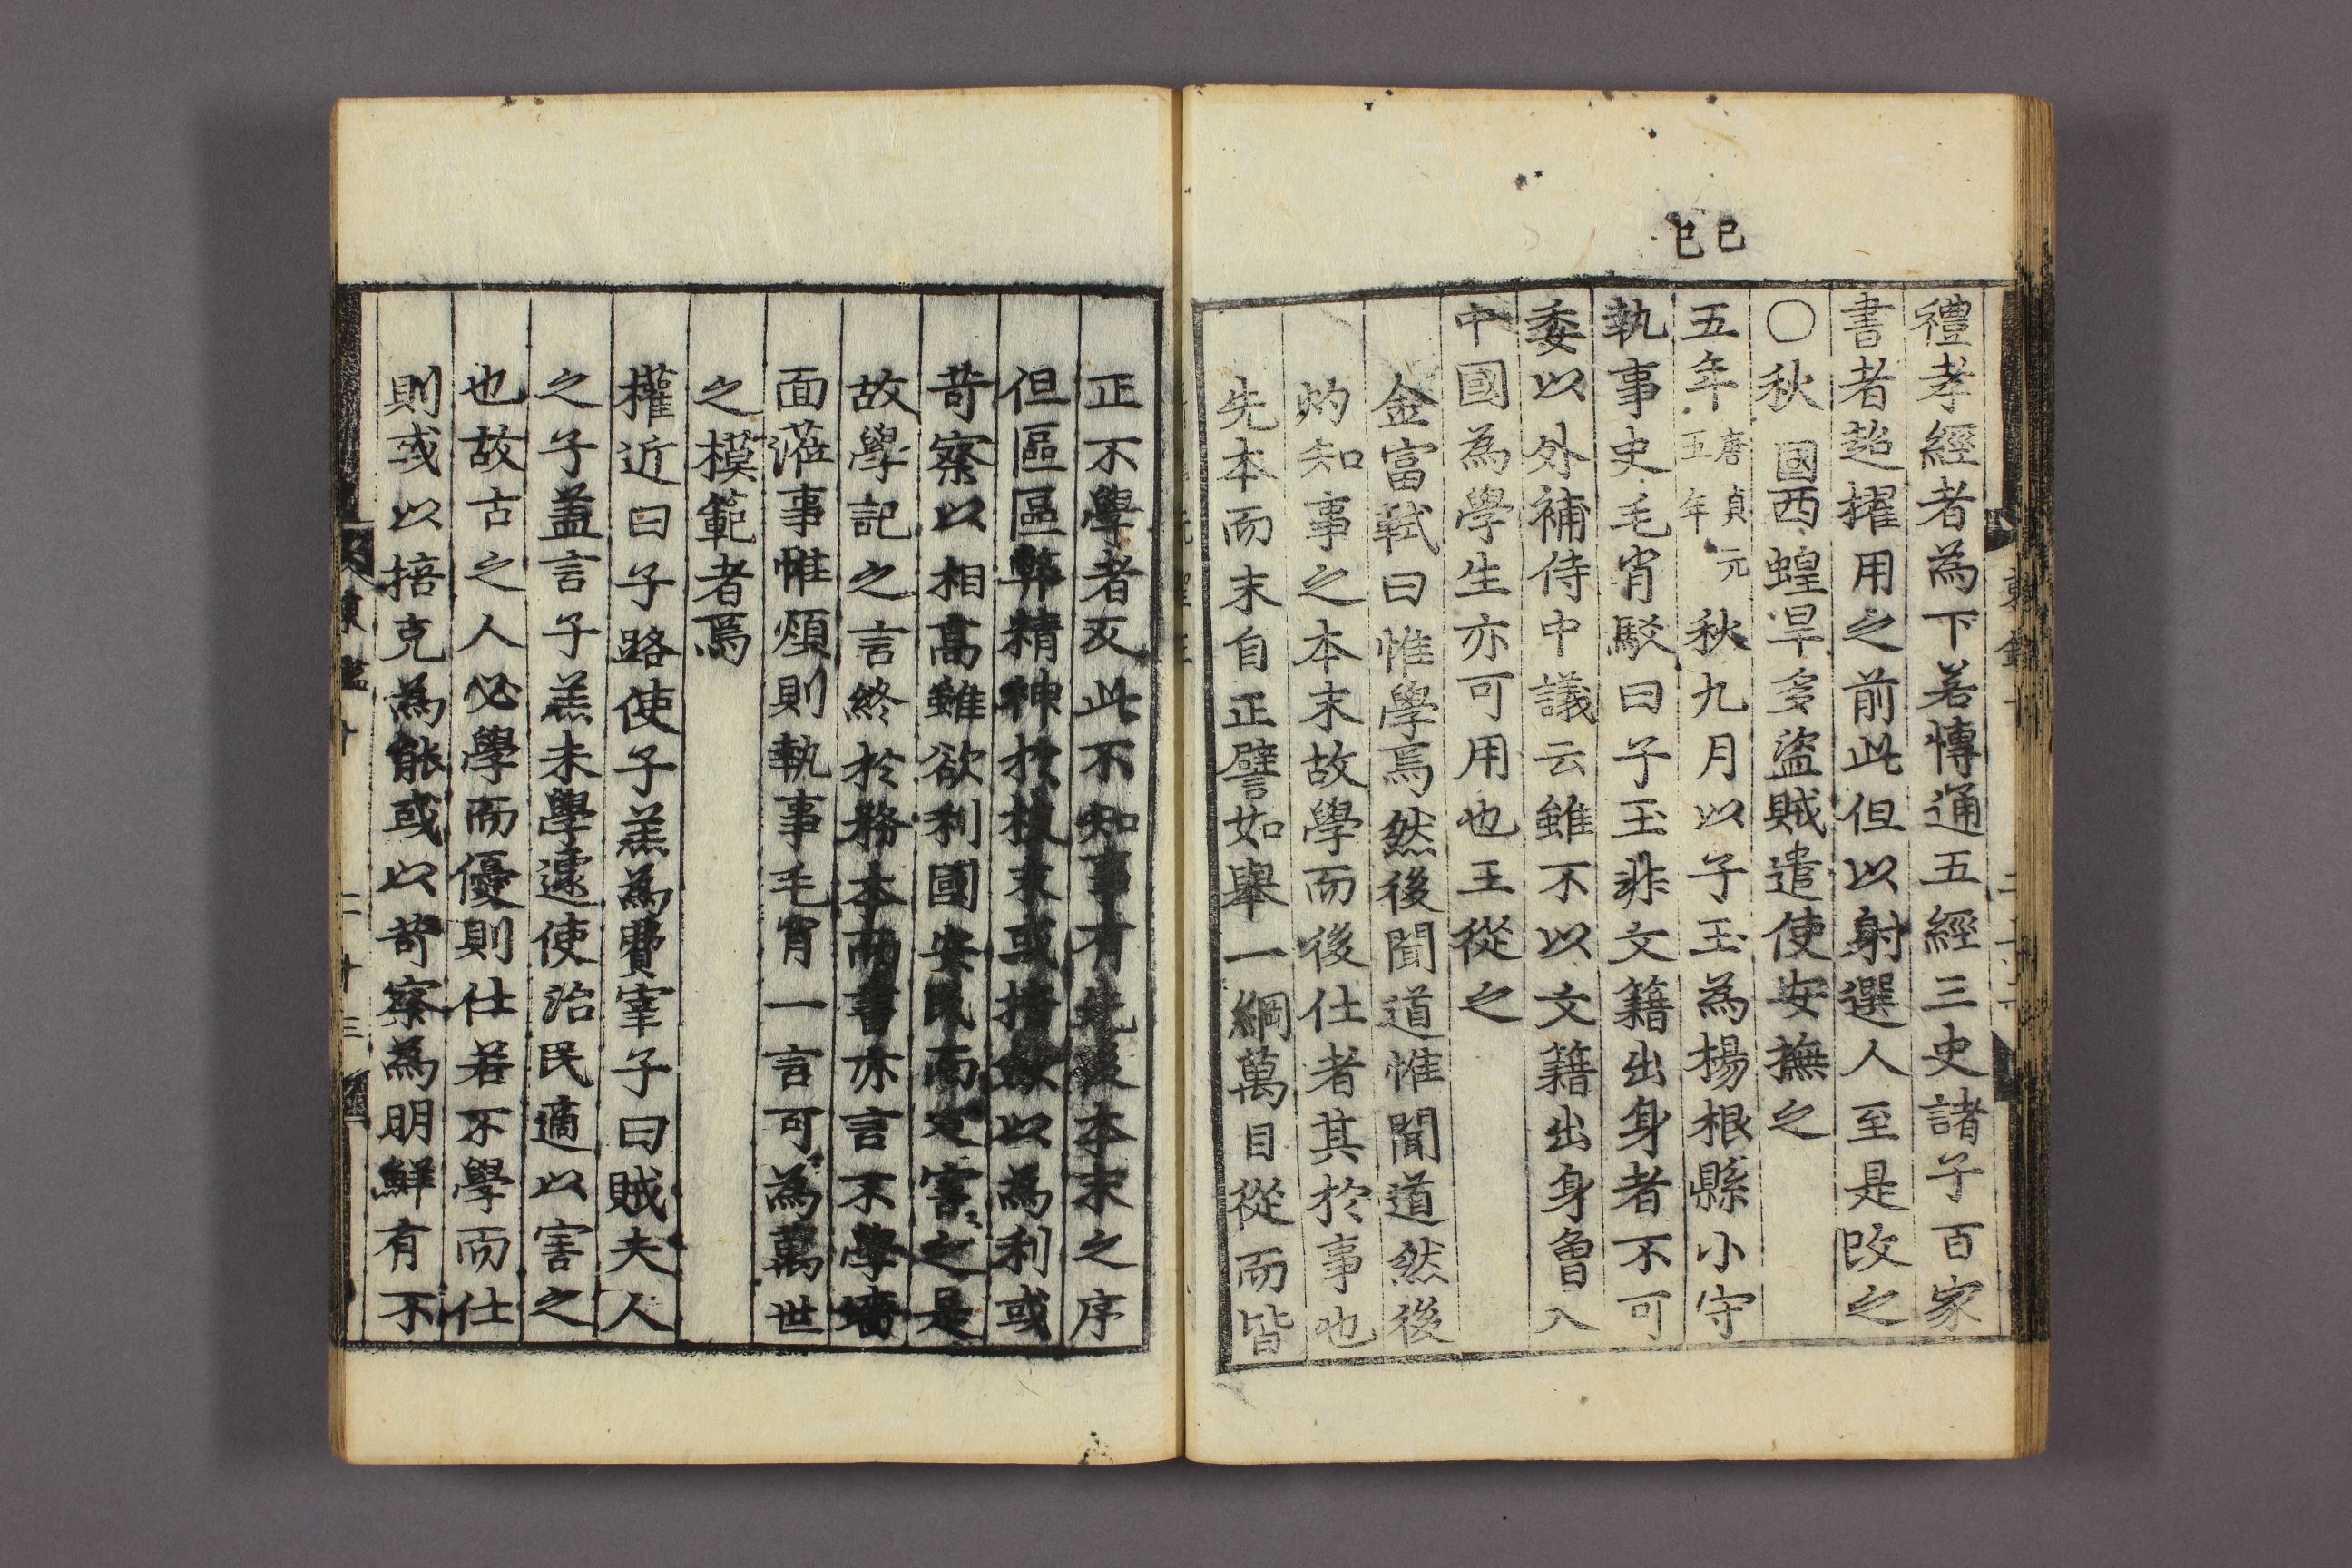 己巳
禮孝經者為下若愽通五經三史諸子百家
書者超擢用之前此但以射選人至是改之
〇秋國西蝗旱多盜賊遣使安撫之
五年唐貞元五年秋九月以子玉為楊根縣小守
執事史毛肖駁曰子玉非文籍出身者不可
委以外補侍中議云雖不以文籍出身曾入
中國為學生亦可用也王從之
金富軾曰惟學焉然後聞道惟聞道然後
灼知事之本末故學而後仕者其於事也
先本而末自正譬如舉一綱萬目從而皆
正不學者反此不知事有先後本末之序
但區區弊精神於枝末或掊歛以為利或
苛察以相高雖欲利國安民而反害之是
故學記之言終於務本而書亦言不學墻
面蒞事惟煩則執事毛肖一言可為萬世
之模範者焉
權近曰子路使子羔為費宰子曰賊夫人
之子盖言子羔未學遽使治民適以害之
也故古之人必學而優則仕若不學而仕
則或以掊克為能或以苛察為明鮮有不
東鑑十 二十三